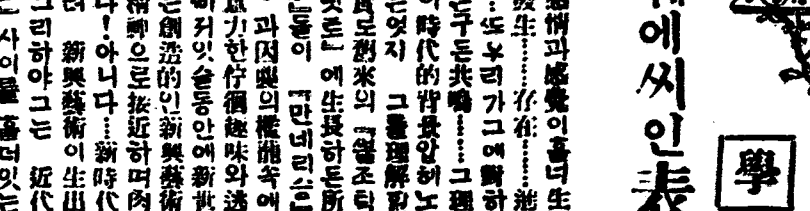 學
에씨인表
感情과感覺이흘너生
發生……存在……
또우리가그에對하
는구든共鳴………그理
時代的背景압헤노
는엇지 그를理解
創來의
에生長하든所
들이 『만네리슴
과因襲의檻籠속에
力한佇徊趣味와逃
잇슬동안에新世
는創造的인新興藝術
精神으로接近하며內
다!아니다……新時代
新興藝術이生出
그리하야그는 近代
사이를 흘너잇는